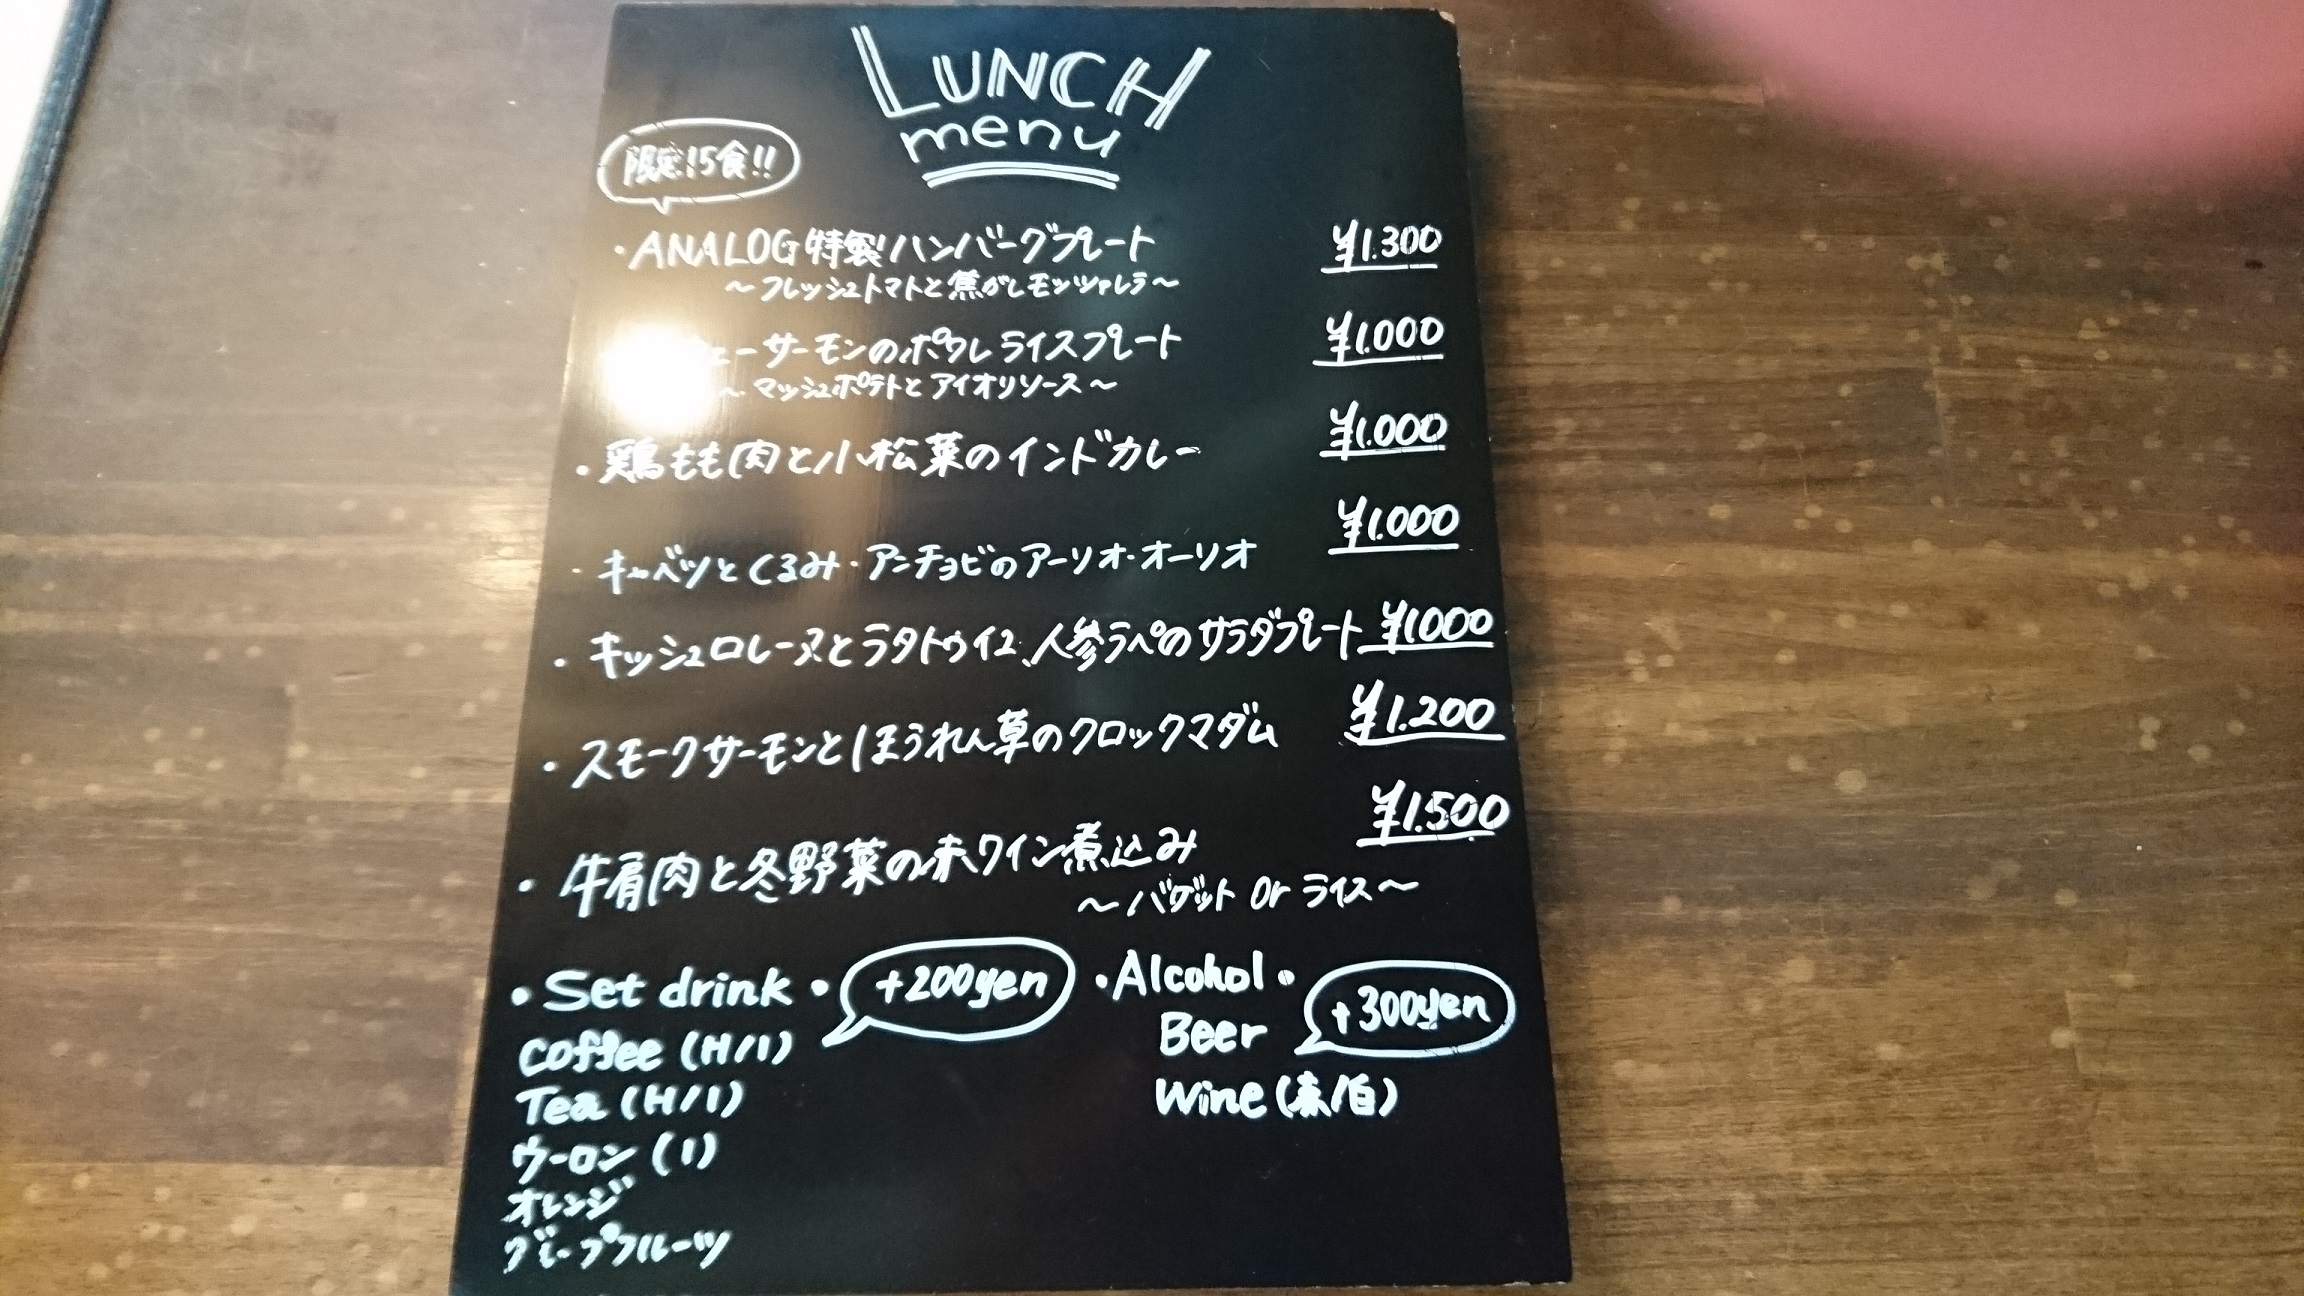 LUNCH
menu
限定15食!!
・ANALOG特製ハンバーグプレート ¥1.300
～フレッシュトマトと焦がしモッツァレラ～
ューサーモンのポワレ ライスプレート ¥1.000
～マッシュポテトとアイオリソース～
・鶏もも肉と小松菜のインドカレー ¥1.000
・キャベツとくるみ・アンチョビのアーリオ・オーリオ ¥1.000
・キッシュロレーヌとラタトゥイユ、人参ラペのサラダプレート ¥1000
・スモークサーモンとほうれん草のクロックマダム ¥1.200
・牛肩肉と冬野菜の赤ワイン煮込み ¥1.500
～バゲット or ライス～
・Set drink・ +200yen
Coffee (H/I)
Tea (H/I)
ウーロン (I)
オレンジ
グレープフルーツ
・Alcohol・ +300yen
Beer
Wine (赤/白)